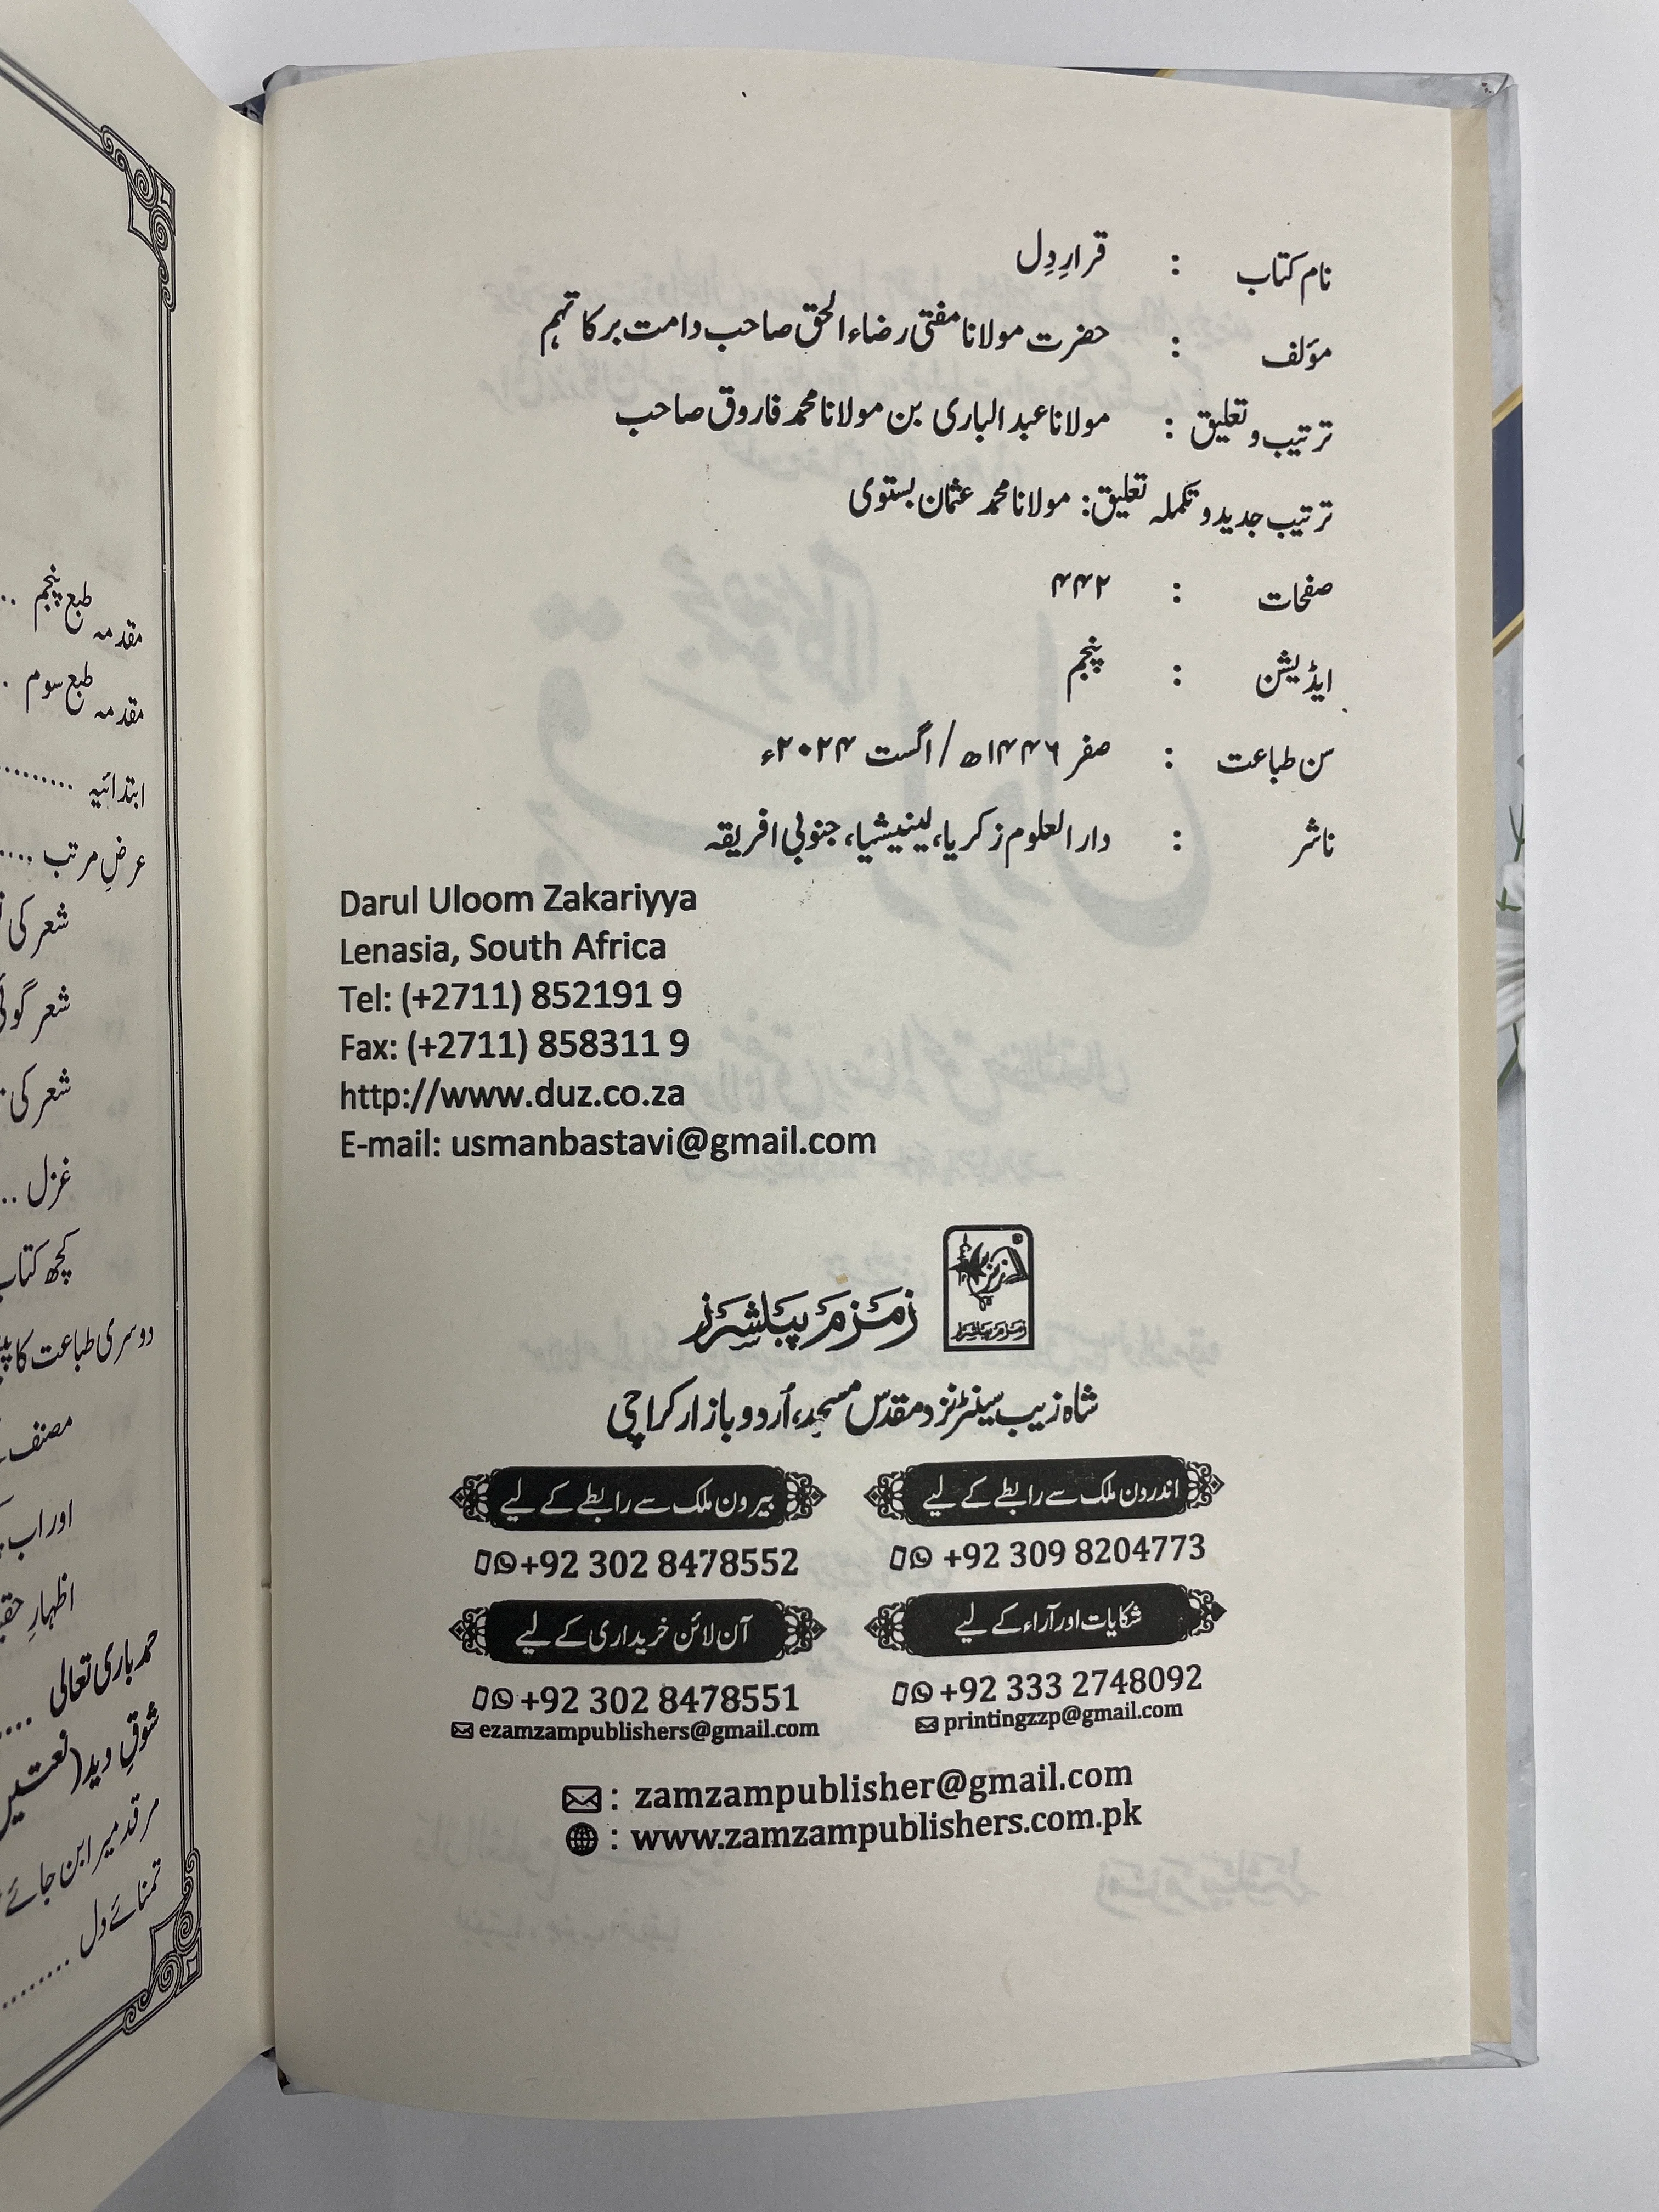 نام کتاب : قرارِ دِل
مؤلف : حضرت مولانا مفتی رضاء الحق صاحب دامت برکاتہم
ترتیب و تعلیق : مولانا عبد الباری بن مولانا محمد فاروق صاحب
ترتیب جدید و تکملہ تعلیق: مولانا محمد عثمان بستوی
صفحات : ۴۴۲
ایڈیشن : پنجم
سن طباعت : صفر ۱۴۴۶ھ / اگست ۲۰۲۴ء
ناشر : دار العلوم زکریا، لینیشیا، جنوبی افریقہ
Darul Uloom Zakariyya
Lenasia, South Africa
Tel: (+2711) 852191 9
Fax: (+2711) 858311 9
http://www.duz.co.za
E-mail: usmanbastavi@gmail.com
زمزم پبلشرز
زمزم پبلشرز
شاہ زیب سینٹر نزد مقدس مسجد، اُردو بازار کراچی
اندرون ملک سے رابطے کے لیے
+92 309 8204773
بیرون ملک سے رابطے کے لیے
+92 302 8478552
شکایات اور آراء کے لیے
+92 333 2748092
printingzzp@gmail.com
آن لائن خریداری کے لیے
+92 302 8478551
ezamzampublishers@gmail.com
: zamzampublisher@gmail.com
: www.zamzampublishers.com.pk
مقدمہ طبع پنجم ..
مقدمہ طبع سوم .
ابتدائیہ .........
عرضِ مرتب .....
شعر کی
شعر گوئی
شعر کی
غزل ..
کچھ کتاب
دوسری طباعت کا
مصنف
اور اب
اظہارِ
حمد باری تعالی ....
شوقِ دید (نعتیں
مرقد میرا بن جائے
تمنائے دل .........